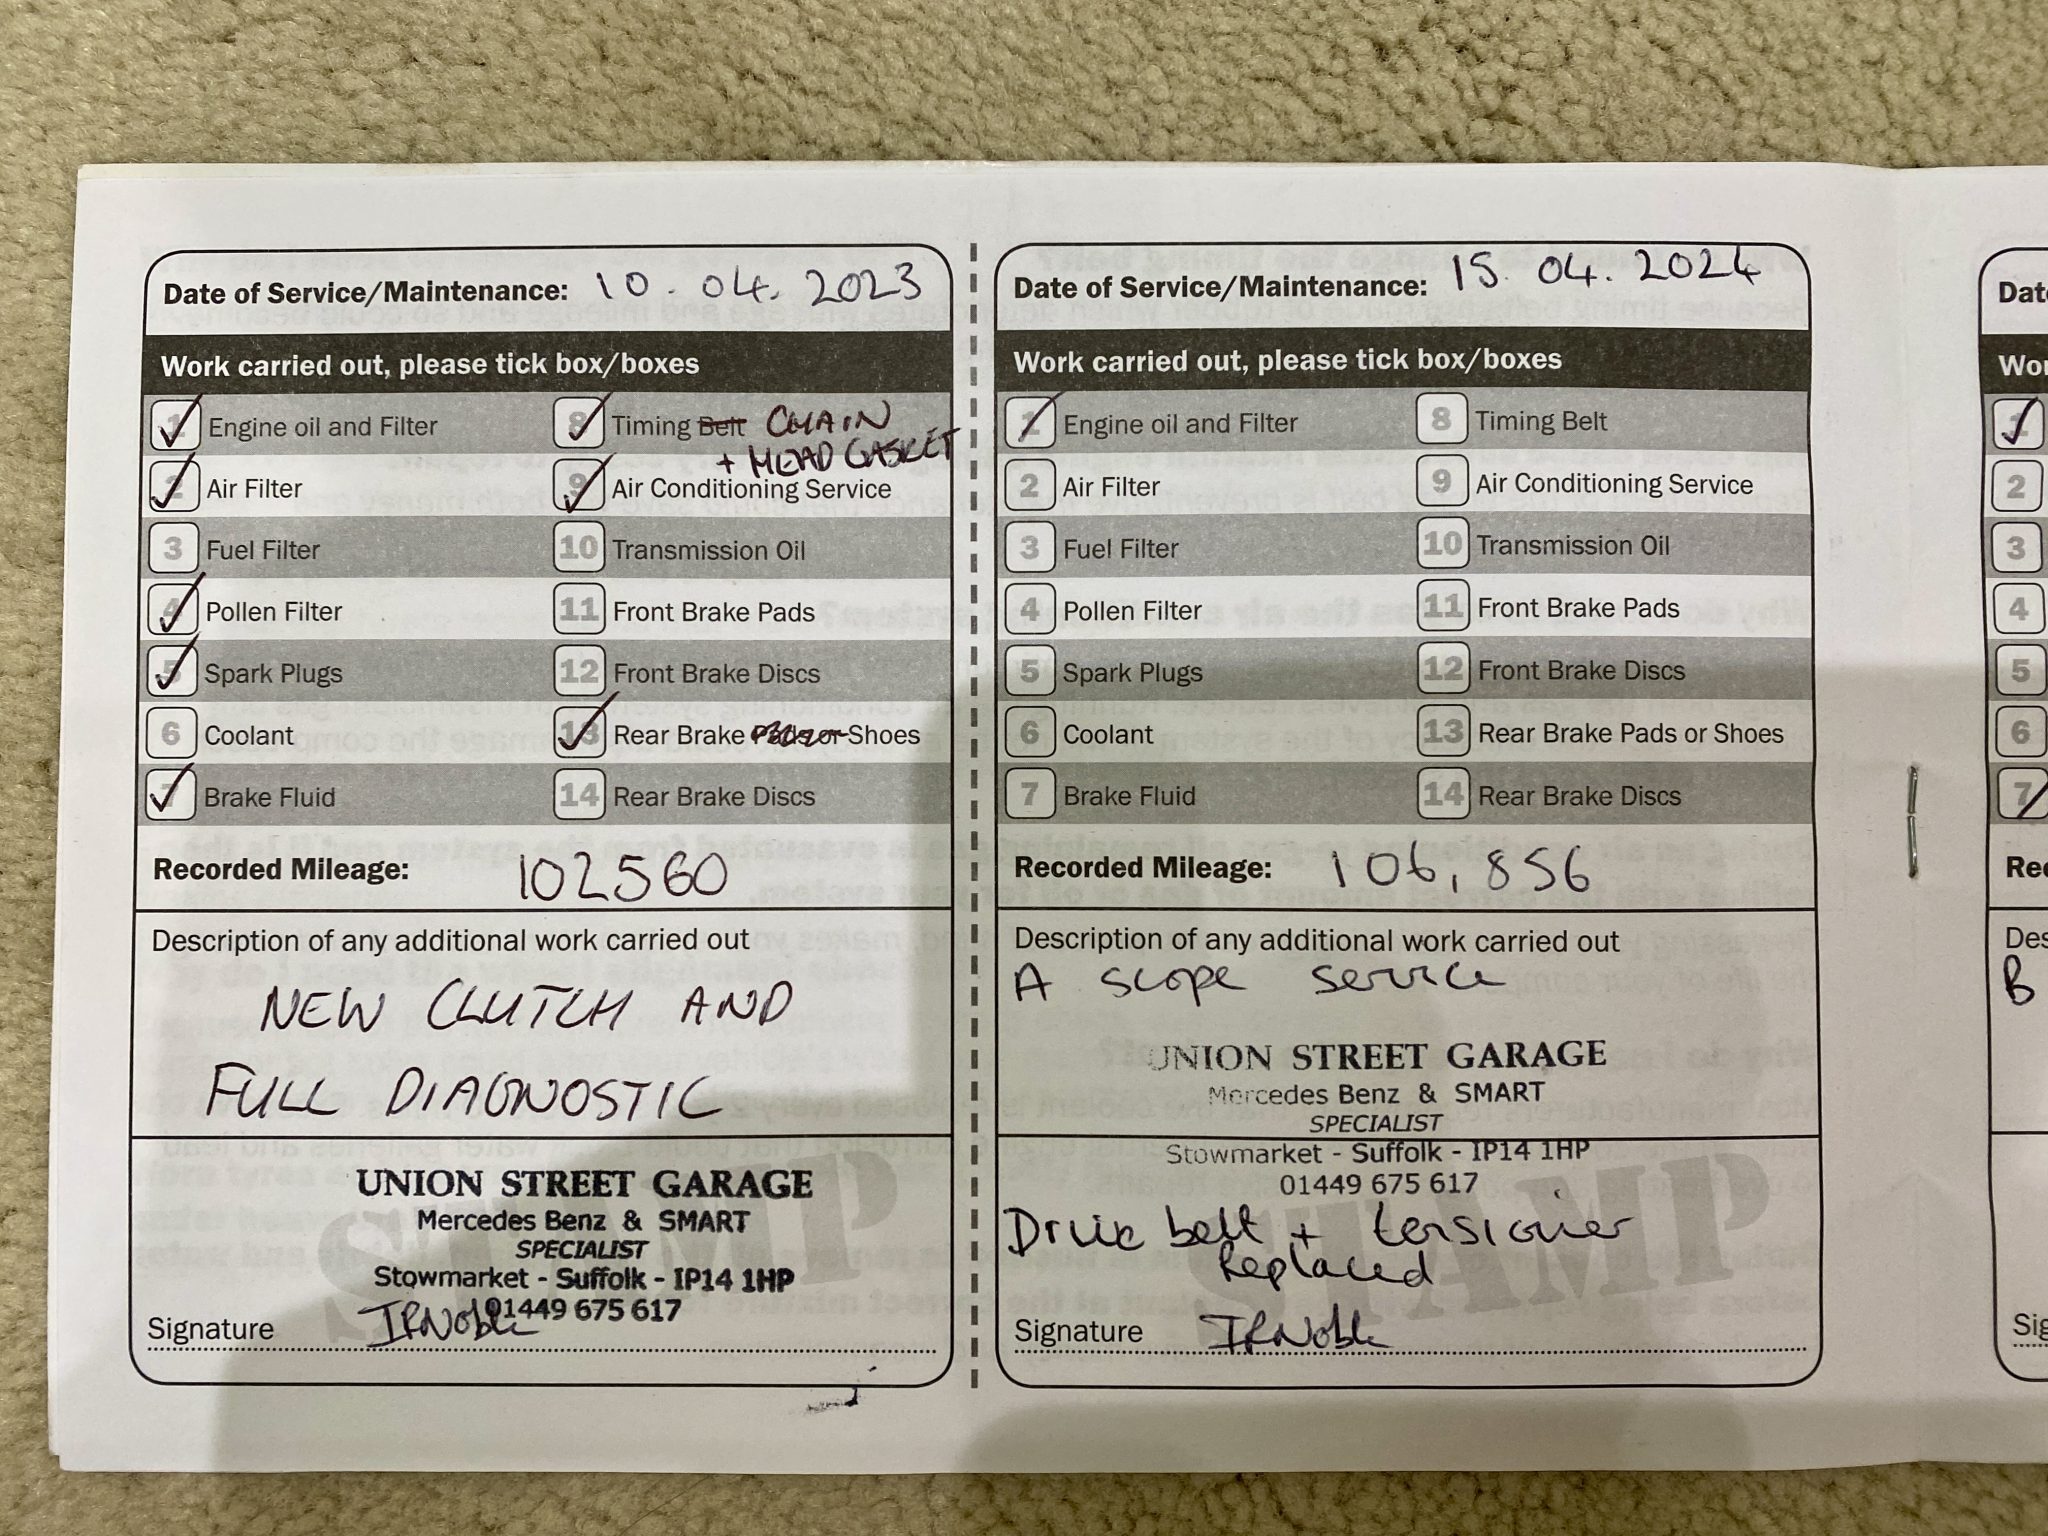 Date of Service/Maintenance: 10.04.2023
Work carried out, please tick box/boxes
1 Engine oil and Filter
8 Timing Belt CHAIN
+ HEAD GASKET
2 Air Filter
9 Air Conditioning Service
3 Fuel Filter
10 Transmission Oil
4 Pollen Filter
11 Front Brake Pads
5 Spark Plugs
12 Front Brake Discs
6 Coolant
13 Rear Brake Pads or Shoes
7 Brake Fluid
14 Rear Brake Discs
Recorded Mileage: 102560
Description of any additional work carried out
NEW CLUTCH AND
FULL DIAGNOSTIC
STAMP
UNION STREET GARAGE
Mercedes Benz & SMART
SPECIALIST
Stowmarket - Suffolk - IP14 1HP
01449 675 617
Signature IRNoble
Date of Service/Maintenance: 15.04.2024
Work carried out, please tick box/boxes
1 Engine oil and Filter
8 Timing Belt
2 Air Filter
9 Air Conditioning Service
3 Fuel Filter
10 Transmission Oil
4 Pollen Filter
11 Front Brake Pads
5 Spark Plugs
12 Front Brake Discs
6 Coolant
13 Rear Brake Pads or Shoes
7 Brake Fluid
14 Rear Brake Discs
Recorded Mileage: 106,856
Description of any additional work carried out
A scope service
UNION STREET GARAGE
Mercedes Benz & SMART
SPECIALIST
Stowmarket - Suffolk - IP14 1HP
01449 675 617
STAMP
Drive belt + tensioner
Replaced
Signature IRNoble
1
2
3
4
5
6
7
B